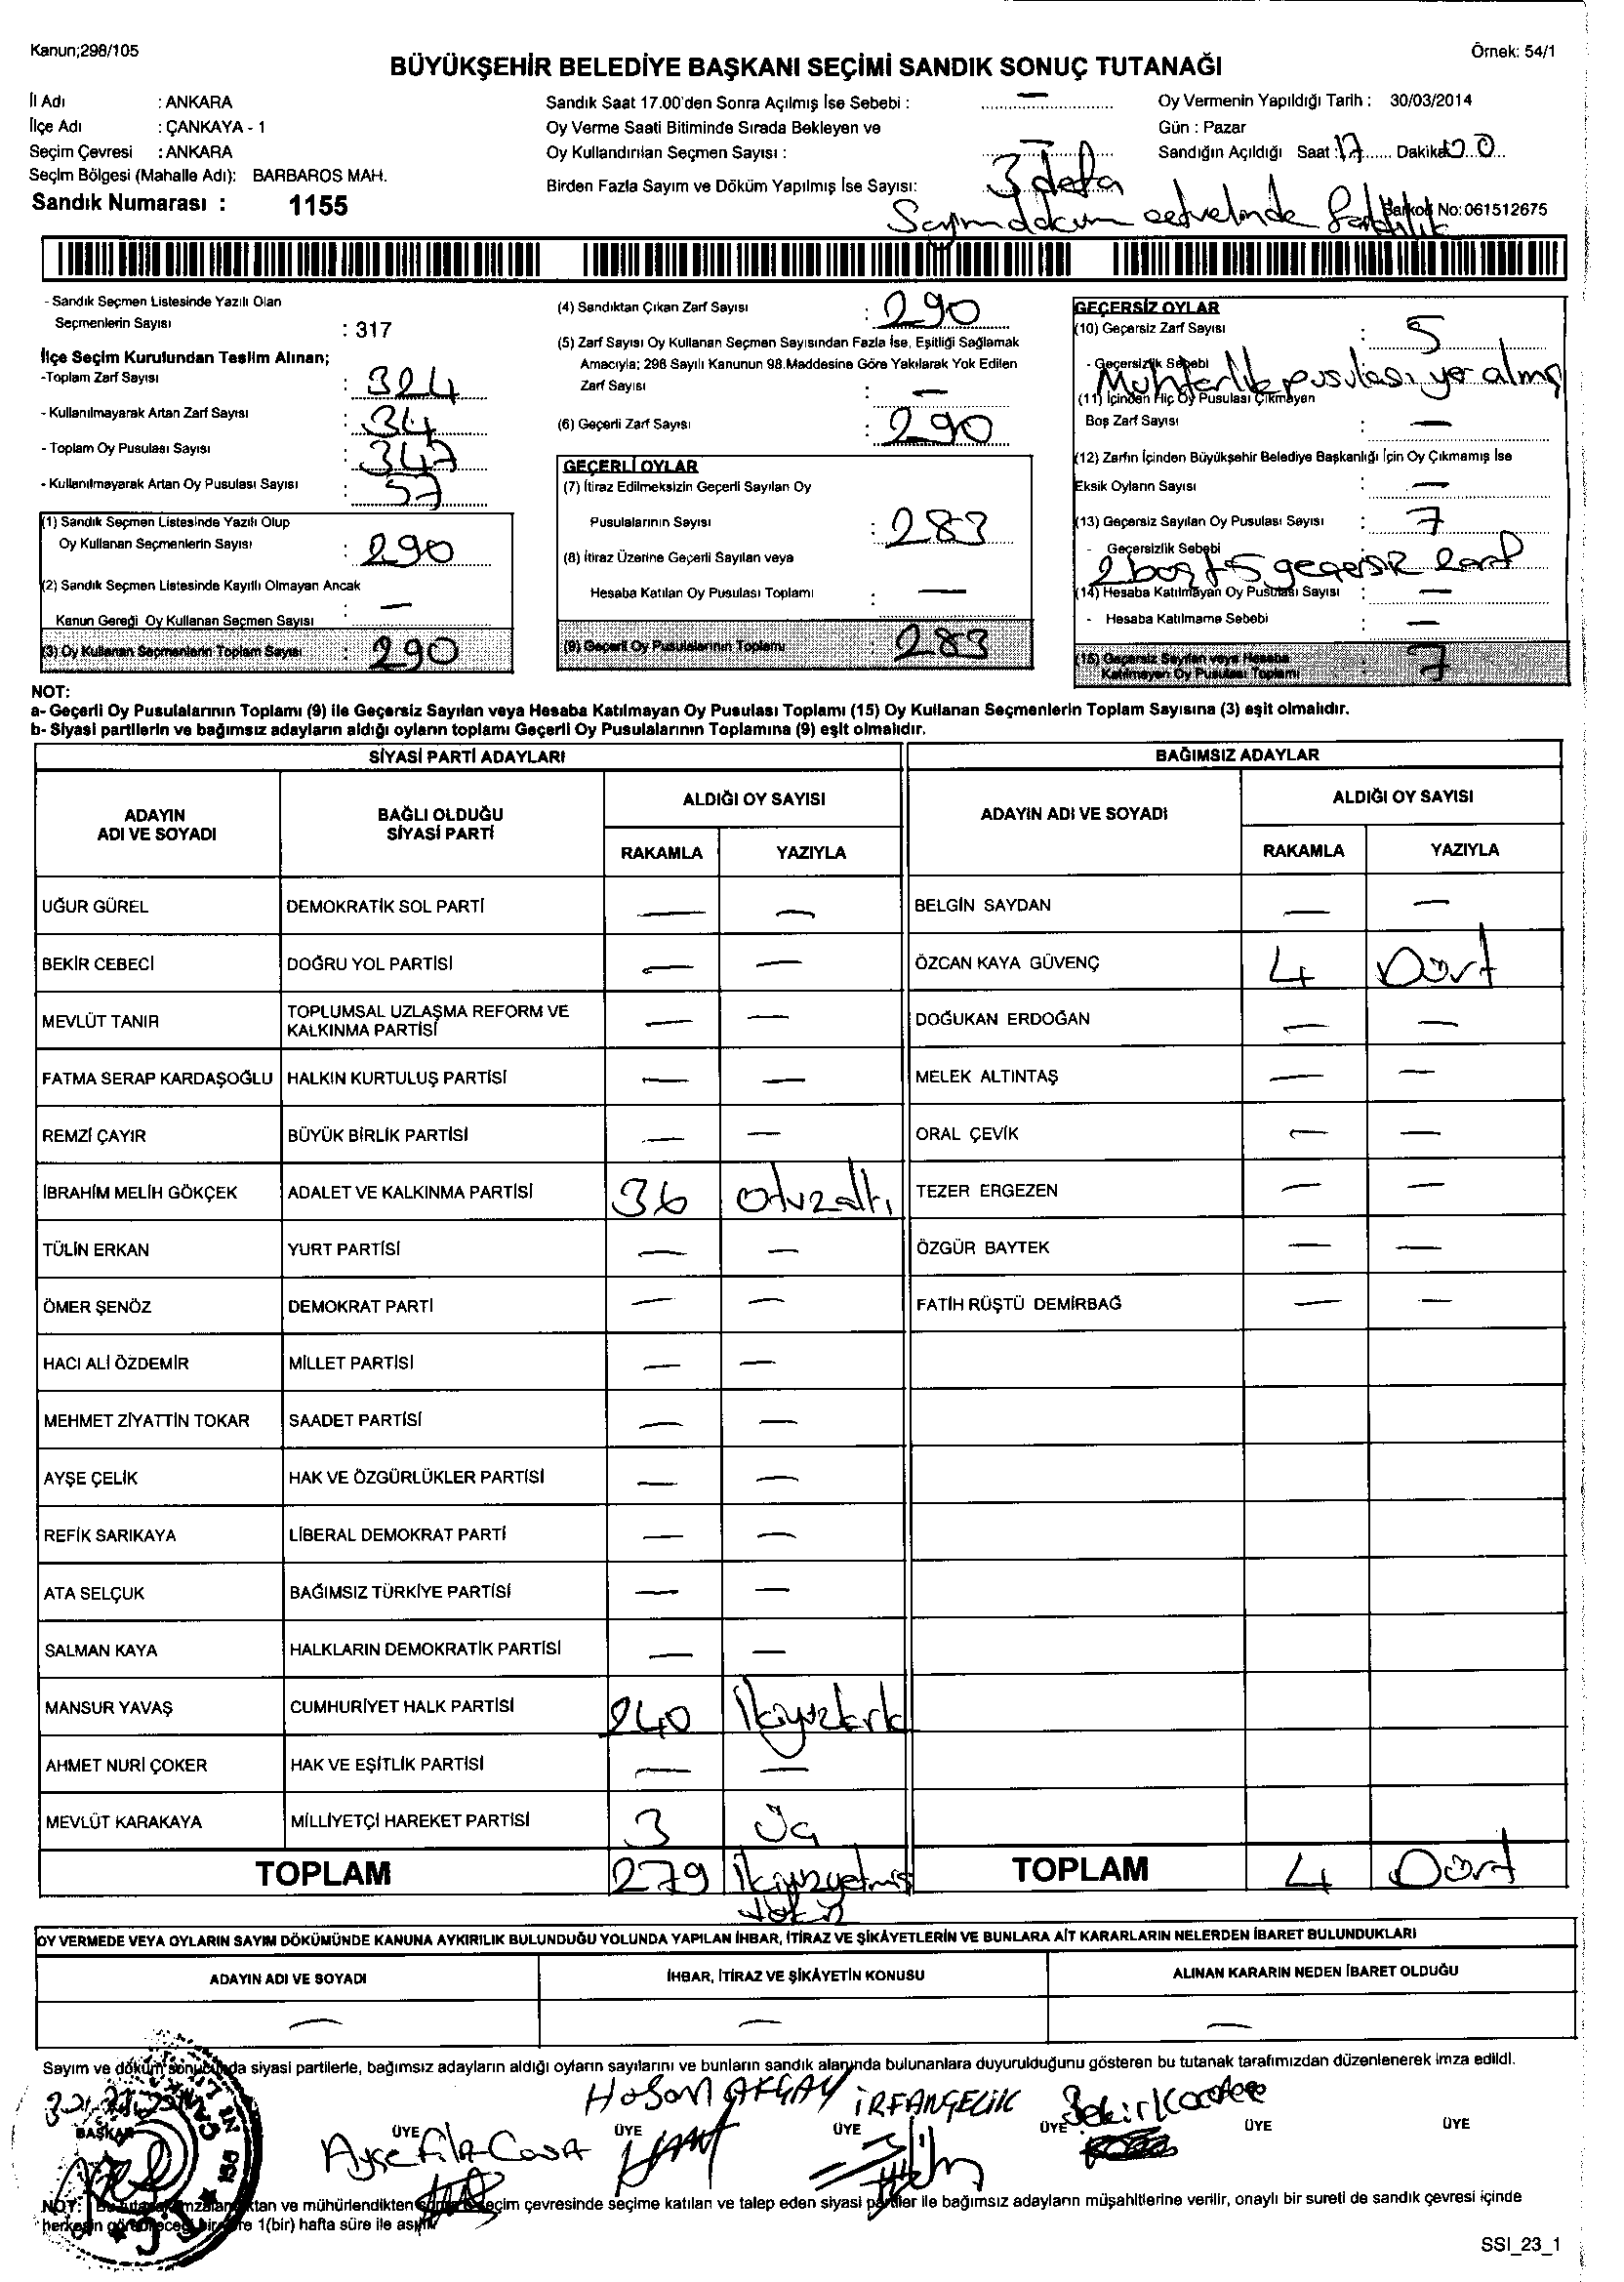 Kanun;298/105
Örnek: 54/1
BÜYÜKŞEHİR BELEDİYE BAŞKANI SEÇİMİ SANDIK SONUÇ TUTANAĞI
İl Adı : ANKARA
İlçe Adı : ÇANKAYA - 1
Seçim Çevresi : ANKARA
Seçim Bölgesi (Mahalle Adı): BARBAROS MAH.
Sandık Numarası : 1155
Sandık Saat 17.00'den Sonra Açılmış İse Sebebi : —
Oy Verme Saati Bitiminde Sırada Bekleyen ve
Oy Kullandırılan Seçmen Sayısı : —
Birden Fazla Sayım ve Döküm Yapılmış İse Sayısı: 3 defa
Sayım döküm cetvelinde farklılık
Oy Vermenin Yapıldığı Tarih : 30/03/2014
Gün : Pazar
Sandığın Açıldığı Saat : 17 Dakika 00
Barkod No: 061512675
- Sandık Seçmen Listesinde Yazılı Olan
Seçmenlerin Sayısı : 317
İlçe Seçim Kurulundan Teslim Alınan;
-Toplam Zarf Sayısı : 324
- Kullanılmayarak Artan Zarf Sayısı : 34
- Toplam Oy Pusulası Sayısı : 347
- Kullanılmayarak Artan Oy Pusulası Sayısı : 57
(1) Sandık Seçmen Listesinde Yazılı Olup
Oy Kullanan Seçmenlerin Sayısı : 290
(2) Sandık Seçmen Listesinde Kayıtlı Olmayan Ancak
Kanun Gereği Oy Kullanan Seçmen Sayısı : —
(3) Oy Kullanan Seçmenlerin Toplam Sayısı : 290
(4) Sandıktan Çıkan Zarf Sayısı : 290
(5) Zarf Sayısı Oy Kullanan Seçmen Sayısından Fazla İse, Eşitliği Sağlamak
Amacıyla; 298 Sayılı Kanunun 98.Maddesine Göre Yakılarak Yok Edilen
Zarf Sayısı : —
(6) Geçerli Zarf Sayısı : 290
GEÇERLİ OYLAR
(7) İtiraz Edilmeksizin Geçerli Sayılan Oy
Pusulalarının Sayısı : 283
(8) İtiraz Üzerine Geçerli Sayılan veya
Hesaba Katılan Oy Pusulası Toplamı : —
(9) Geçerli Oy Pusulalarının Toplamı : 283
GEÇERSİZ OYLAR
(10) Geçersiz Zarf Sayısı : 5
- Geçersizlik Sebebi
Muhtarlık pusulası yer almış
(11) İçinden Hiç Oy Pusulası Çıkmayan
Boş Zarf Sayısı : —
(12) Zarfın İçinden Büyükşehir Belediye Başkanlığı İçin Oy Çıkmamış İse
Eksik Oyların Sayısı : —
(13) Geçersiz Sayılan Oy Pusulası Sayısı : 7
- Geçersizlik Sebebi
2 boş + 5 geçersiz zarf
(14) Hesaba Katılmayan Oy Pusulası Sayısı : —
- Hesaba Katılmama Sebebi : —
(15) Geçersiz Sayılan veya Hesaba
Katılmayan Oy Pusulası Toplamı : 7
NOT:
a- Geçerli Oy Pusulalarının Toplamı (9) ile Geçersiz Sayılan veya Hesaba Katılmayan Oy Pusulası Toplamı (15) Oy Kullanan Seçmenlerin Toplam Sayısına (3) eşit olmalıdır.
b- Siyasi partilerin ve bağımsız adayların aldığı oyların toplamı Geçerli Oy Pusulalarının Toplamına (9) eşit olmalıdır.
SİYASİ PARTİ ADAYLARI
ADAYIN ADI VE SOYADI BAĞLI OLDUĞU SİYASİ PARTİ ALDIĞI OY SAYISI
RAKAMLA YAZIYLA
UĞUR GÜREL DEMOKRATİK SOL PARTİ — —
BEKİR CEBECİ DOĞRU YOL PARTİSİ — —
MEVLÜT TANIR TOPLUMSAL UZLAŞMA REFORM VE KALKINMA PARTİSİ — —
FATMA SERAP KARDAŞOĞLU HALKIN KURTULUŞ PARTİSİ — —
REMZİ ÇAYIR BÜYÜK BİRLİK PARTİSİ — —
İBRAHİM MELİH GÖKÇEK ADALET VE KALKINMA PARTİSİ 36 otuzaltı
TÜLİN ERKAN YURT PARTİSİ — —
ÖMER ŞENÖZ DEMOKRAT PARTİ — —
HACI ALİ ÖZDEMİR MİLLET PARTİSİ — —
MEHMET ZİYATTİN TOKAR SAADET PARTİSİ — —
AYŞE ÇELİK HAK VE ÖZGÜRLÜKLER PARTİSİ — —
REFİK SARIKAYA LİBERAL DEMOKRAT PARTİ — —
ATA SELÇUK BAĞIMSIZ TÜRKİYE PARTİSİ — —
SALMAN KAYA HALKLARIN DEMOKRATİK PARTİSİ — —
MANSUR YAVAŞ CUMHURİYET HALK PARTİSİ 240 İkiyüzkırk
AHMET NURİ ÇOKER HAK VE EŞİTLİK PARTİSİ — —
MEVLÜT KARAKAYA MİLLİYETÇİ HAREKET PARTİSİ 3 Üç
TOPLAM 279 ikiyüzyetmiş dokuz
BAĞIMSIZ ADAYLAR
ADAYIN ADI VE SOYADI ALDIĞI OY SAYISI
RAKAMLA YAZIYLA
BELGİN SAYDAN — —
ÖZCAN KAYA GÜVENÇ 4 Dört
DOĞUKAN ERDOĞAN — —
MELEK ALTINTAŞ — —
ORAL ÇEVİK — —
TEZER ERGEZEN — —
ÖZGÜR BAYTEK — —
FATİH RÜŞTÜ DEMİRBAĞ — —
TOPLAM 4 Dört
OY VERMEDE VEYA OYLARIN SAYIM DÖKÜMÜNDE KANUNA AYKIRILIK BULUNDUĞU YOLUNDA YAPILAN İHBAR, İTİRAZ VE ŞİKÂYETLERİN VE BUNLARA AİT KARARLARIN NELERDEN İBARET BULUNDUKLARI
ADAYIN ADI VE SOYADI İHBAR, İTİRAZ VE ŞİKÂYETİN KONUSU ALINAN KARARIN NEDEN İBARET OLDUĞU
— — —
Sayım ve döküm sonucunda siyasi partilerle, bağımsız adayların aldığı oyların sayılarını ve bunların sandık alanında bulunanlara duyurulduğunu gösteren bu tutanak tarafımızdan düzenlenerek imza edildi.
Hasan AKÇAY İRFAN ÇELİK Bekir
BAŞKAN ÜYE ÜYE ÜYE ÜYE ÜYE ÜYE
Ayşe
NOT: Bu tutanak imzalandıktan ve mühürlendikten sonra seçim çevresinde seçime katılan ve talep eden siyasi partiler ile bağımsız adayların müşahitlerine verilir, onaylı bir sureti de sandık çevresi içinde
herkesin görebileceği bir yere 1(bir) hafta süre ile asılır.
SSI_23_1